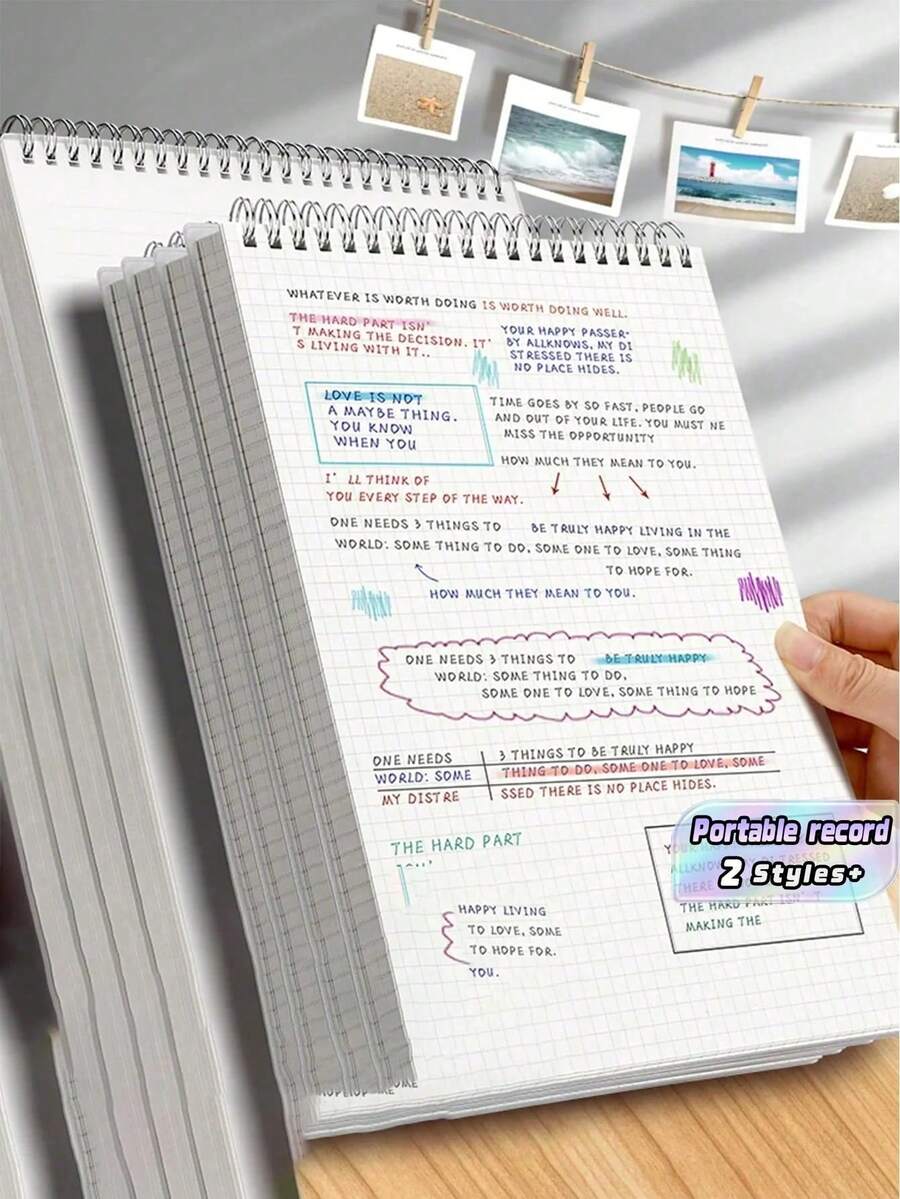 WHATEVER IS WORTH DOING IS WORTH DOING WELL.
THE HARD PART ISN'
T MAKING THE DECISION. IT'
S LIVING WITH IT..
YOUR HAPPY PASSER-
BY ALLKNOWS, MY DI
STRESSED THERE IS
NO PLACE HIDES.
LOVE IS NOT
A MAYBE THING.
YOU KNOW
WHEN YOU
TIME GOES BY SO FAST, PEOPLE GO
AND OUT OF YOUR LIFE. YOU MUST NE
MISS THE OPPORTUNITY
HOW MUCH THEY MEAN TO YOU.
I' LL THINK OF
YOU EVERY STEP OF THE WAY.
ONE NEEDS 3 THINGS TO BE TRULY HAPPY LIVING IN THE
WORLD: SOME THING TO DO, SOME ONE TO LOVE, SOME THING
TO HOPE FOR.
HOW MUCH THEY MEAN TO YOU.
ONE NEEDS 3 THINGS TO BE TRULY HAPPY
WORLD: SOME THING TO DO,
SOME ONE TO LOVE, SOME THING TO HOPE
ONE NEEDS 3 THINGS TO BE TRULY HAPPY
WORLD: SOME THING TO DO, SOME ONE TO LOVE, SOME
MY DISTRE SSED THERE IS NO PLACE HIDES.
THE HARD PART
Portable record
2 Styles+
THERE
THE HARD PART ISN' T
MAKING THE
HAPPY LIVING
TO LOVE, SOME
TO HOPE FOR.
YOU.